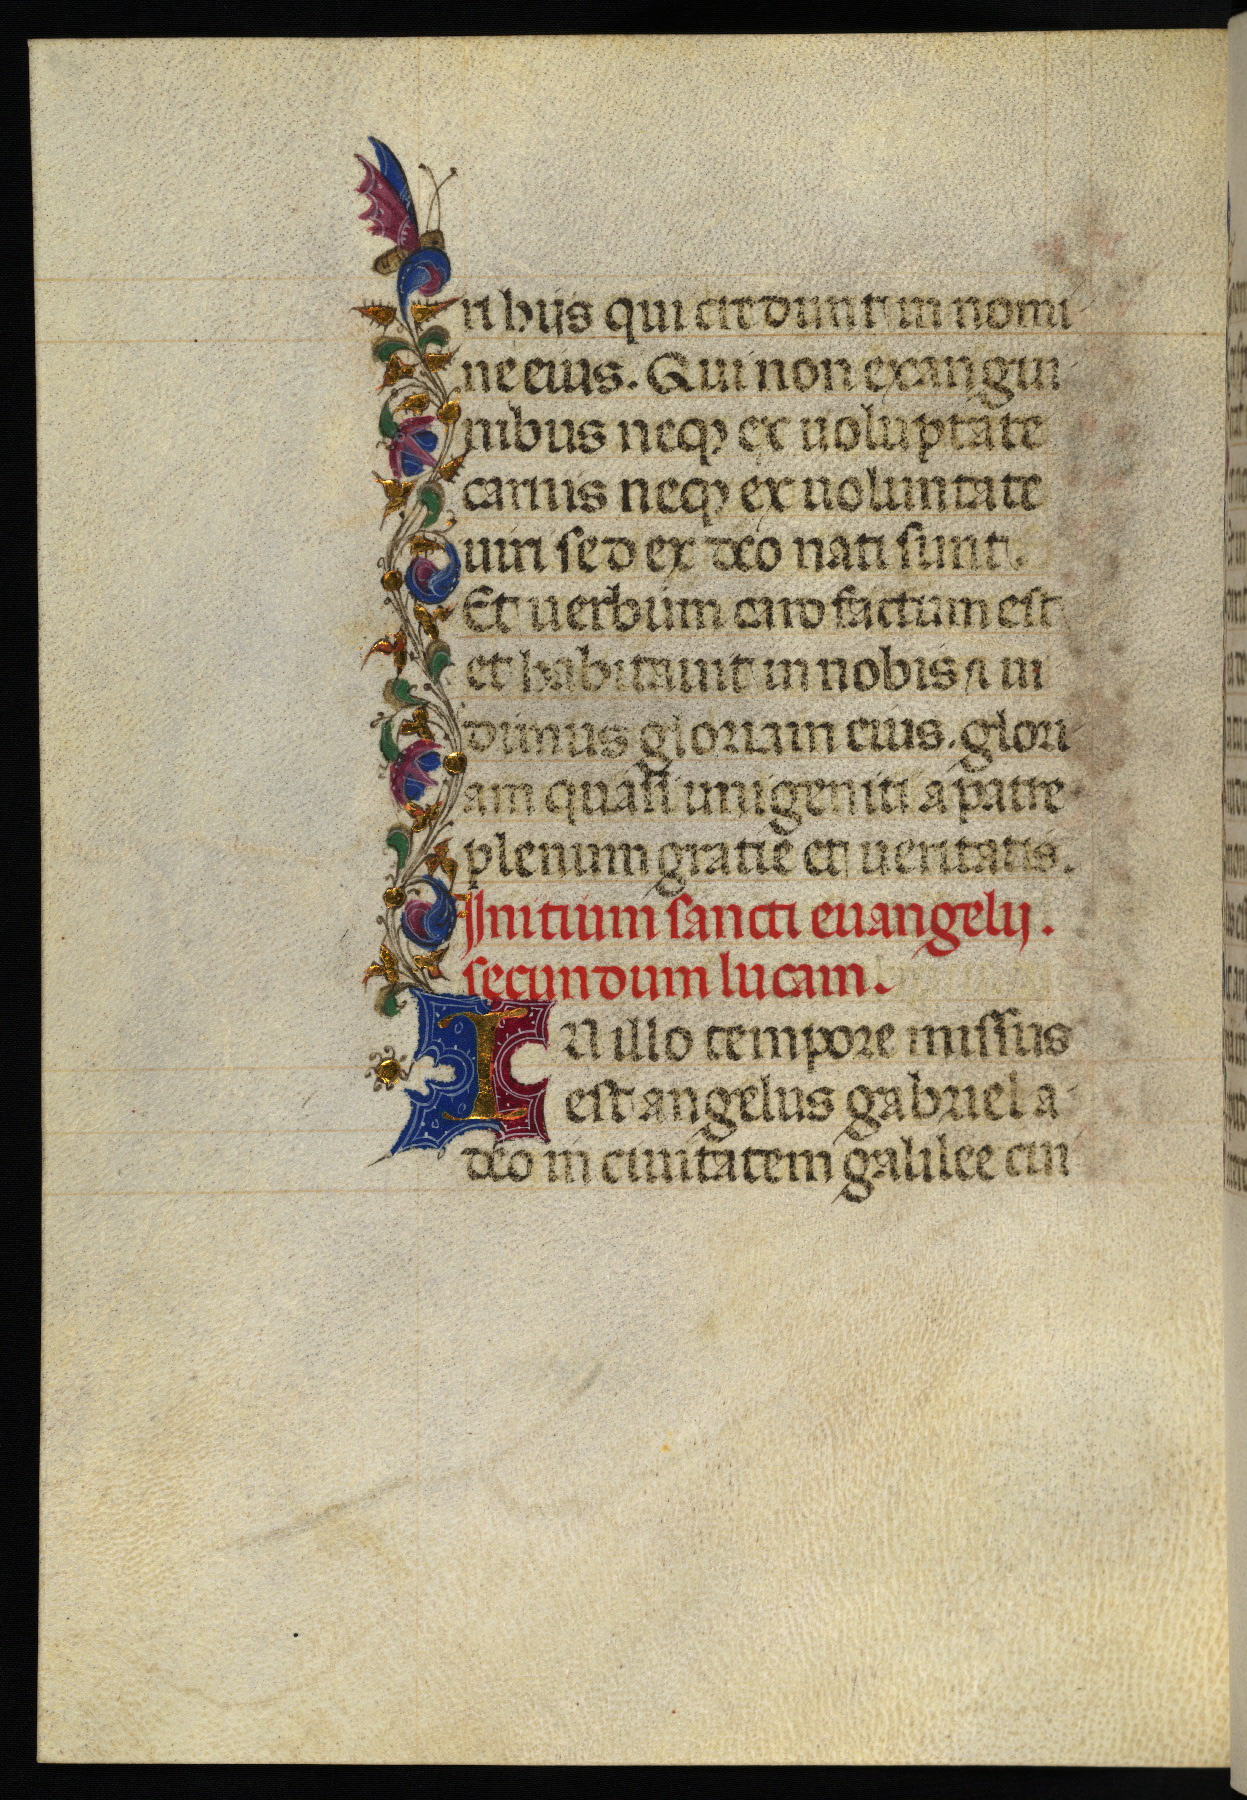 ri hijs qui credunt in nomi
ne eius. Qui non ex sangui
nibus neqȝ ex uoluptate
carnis neqȝ ex uoluntate
uiri sed ex deo nati sunt.
Et uerbum caro factum est
et habitauit in nobis ⁊ ui
dimus gloriam eius. glori
am quasi unigeniti a patre
plenum gratie et ueritatis.
Initium sancti euangelij.
secundum lucam.
IN illo tempore missus
est angelus gabriel a
deo in ciuitatem galilee cui